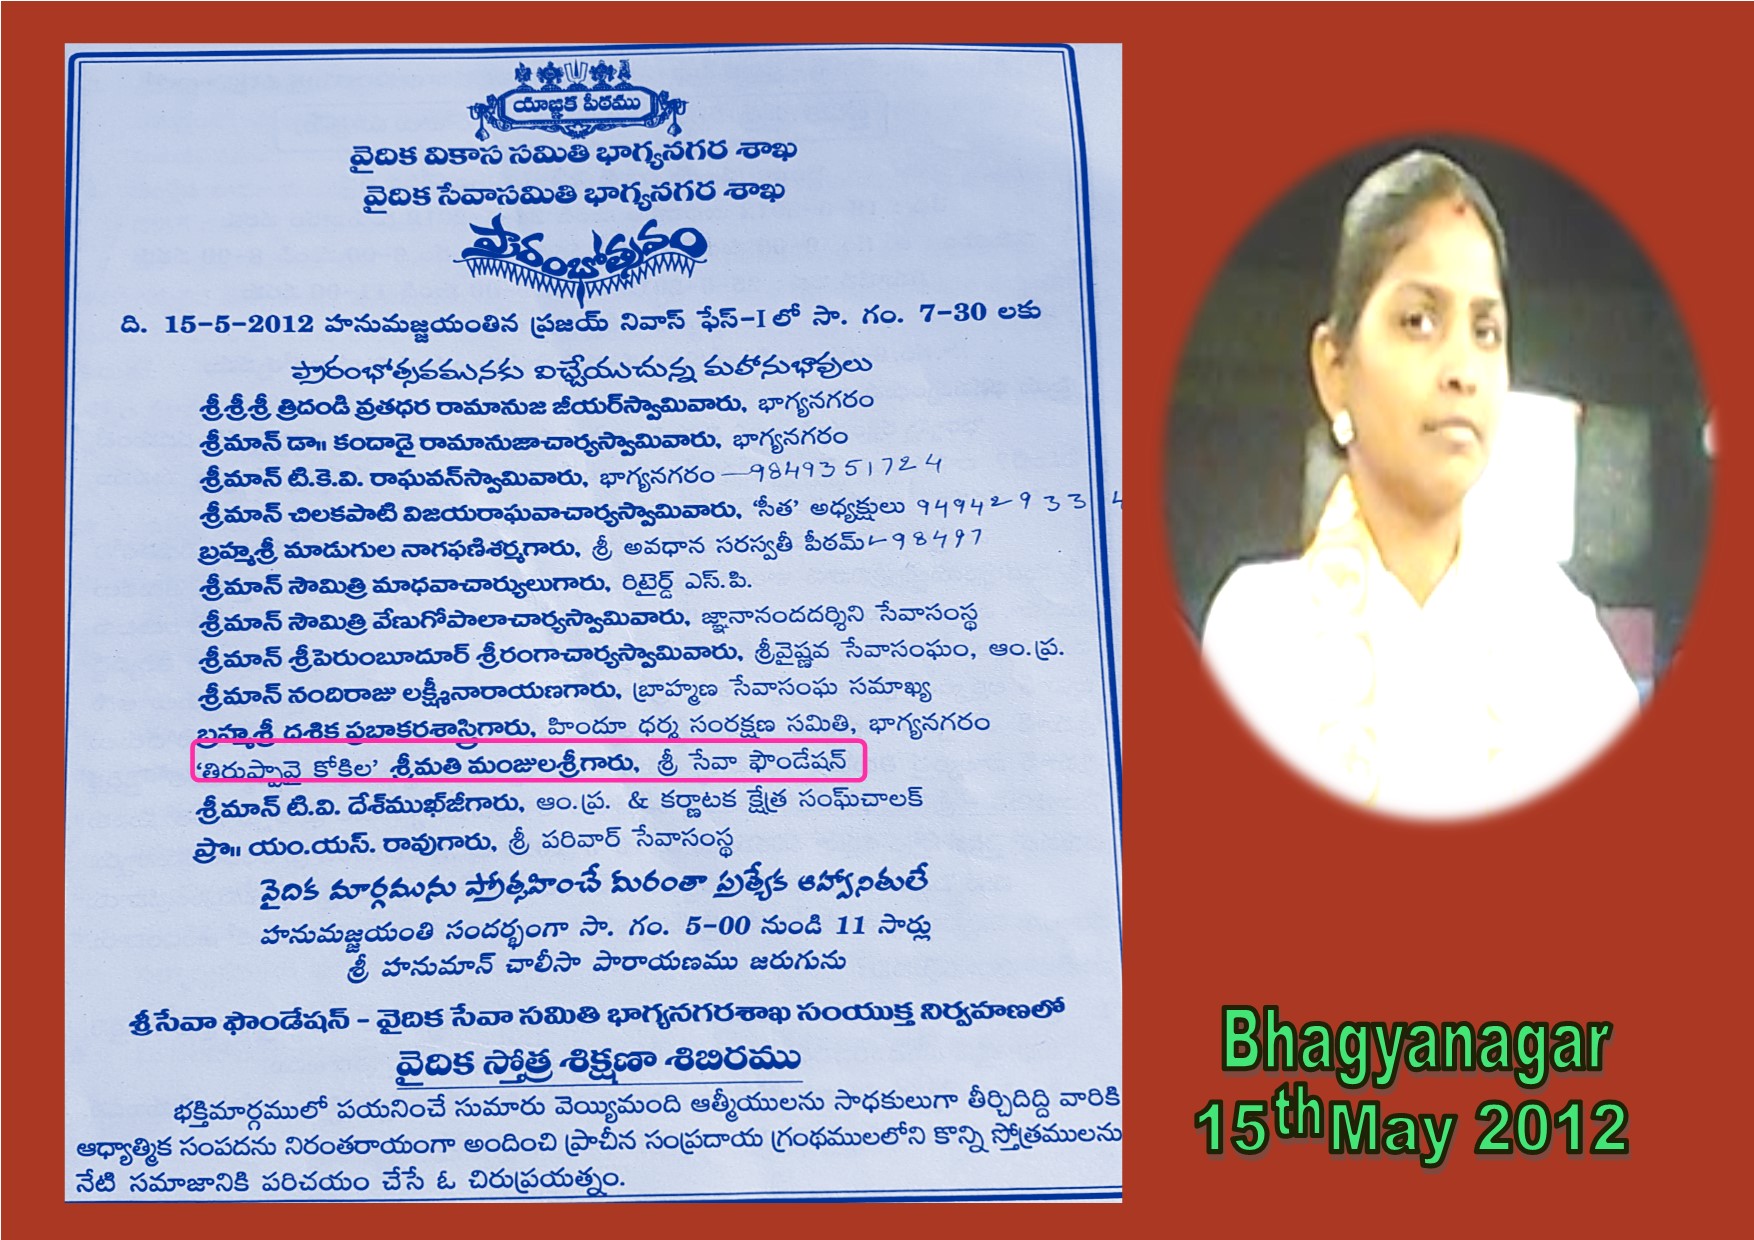 యాజ్ఞిక పీఠము
వైదిక వికాస సమితి భాగ్యనగర శాఖ
వైదిక సేవాసమితి భాగ్యనగర శాఖ
ప్రారంభోత్సవం
ది. 15-5-2012 హనుమజ్జయంతిన ప్రజయ్ నివాస్ ఫేస్-I లో సా. గం. 7-30 లకు
ప్రారంభోత్సవమునకు విచ్చేయుచున్న మహానుభావులు
శ్రీశ్రీశ్రీ త్రిదండి వ్రతధర రామానుజ జీయర్‌స్వామివారు, భాగ్యనగరం
శ్రీమాన్ డా॥ కందాడై రామానుజాచార్యస్వామివారు, భాగ్యనగరం
శ్రీమాన్ టి.కె.వి. రాఘవన్‌స్వామివారు, భాగ్యనగరం - 9849351724
శ్రీమాన్ చిలకపాటి విజయరాఘవాచార్యస్వామివారు, 'సీత' అధ్యక్షులు 94942933
బ్రహ్మశ్రీ మాడుగుల నాగఫణిశర్మగారు, శ్రీ అవధాన సరస్వతీ పీఠమ్ - 98497
శ్రీమాన్ సౌమిత్రి మాధవాచార్యులుగారు, రిటైర్డ్ ఎస్.పి.
శ్రీమాన్ సౌమిత్రి వేణుగోపాలాచార్యస్వామివారు, జ్ఞానానందదర్శిని సేవాసంస్థ
శ్రీమాన్ శ్రీపెరుంబూదూర్ శ్రీరంగాచార్యస్వామివారు, శ్రీవైష్ణవ సేవాసంఘం, ఆం.ప్ర.
శ్రీమాన్ నందిరాజు లక్ష్మీనారాయణగారు, బ్రాహ్మణ సేవాసంఘ సమాఖ్య
బ్రహ్మశ్రీ దశిక ప్రభాకరశాస్త్రిగారు, హిందూ ధర్మ సంరక్షణ సమితి, భాగ్యనగరం
'తిరుప్పావై కోకిల' శ్రీమతి మంజులశ్రీగారు, శ్రీ సేవా ఫౌండేషన్
శ్రీమాన్ టి.వి. దేశ్‌ముఖ్‌జీగారు, ఆం.ప్ర. & కర్ణాటక క్షేత్ర సంఘ్‌చాలక్
ప్రొ॥ యం.యస్. రావుగారు, శ్రీ పరివార్ సేవాసంస్థ
వైదిక మార్గమును ప్రోత్సహించే మీరంతా ప్రత్యేక ఆహ్వానితులే
హనుమజ్జయంతి సందర్భంగా సా. గం. 5-00 నుండి 11 సార్లు
శ్రీ హనుమాన్ చాలీసా పారాయణము జరుగును
శ్రీసేవా ఫౌండేషన్ - వైదిక సేవా సమితి భాగ్యనగరశాఖ సంయుక్త నిర్వహణలో
వైదిక స్తోత్ర శిక్షణా శిబిరము
భక్తిమార్గములో పయనించే సుమారు వెయ్యిమంది ఆత్మీయులను సాధకులుగా తీర్చిదిద్ది వారికి
ఆధ్యాత్మిక సంపదను నిరంతరాయంగా అందించి ప్రాచీన సంప్రదాయ గ్రంథములలోని కొన్ని స్తోత్రములను
నేటి సమాజానికి పరిచయం చేసే ఓ చిరుప్రయత్నం.
Bhagyanagar
15th May 2012